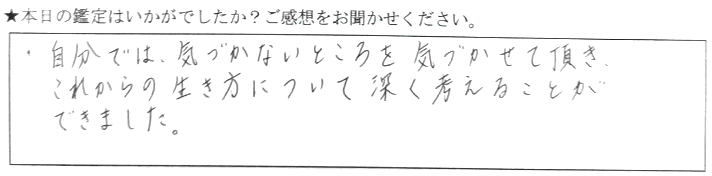 ★本日の鑑定はいかがでしたか？ご感想をお聞かせください。
・自分では、気づかないところを気づかせて頂き、
これからの生き方について深く考えることが
できました。